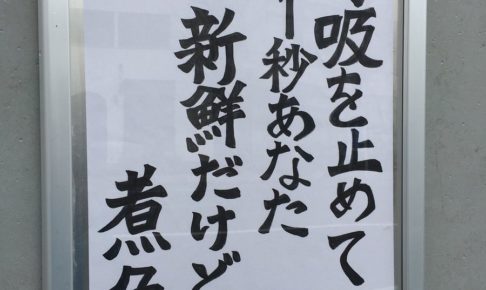 吸を止めて
秒あなた
新鮮だけど
煮